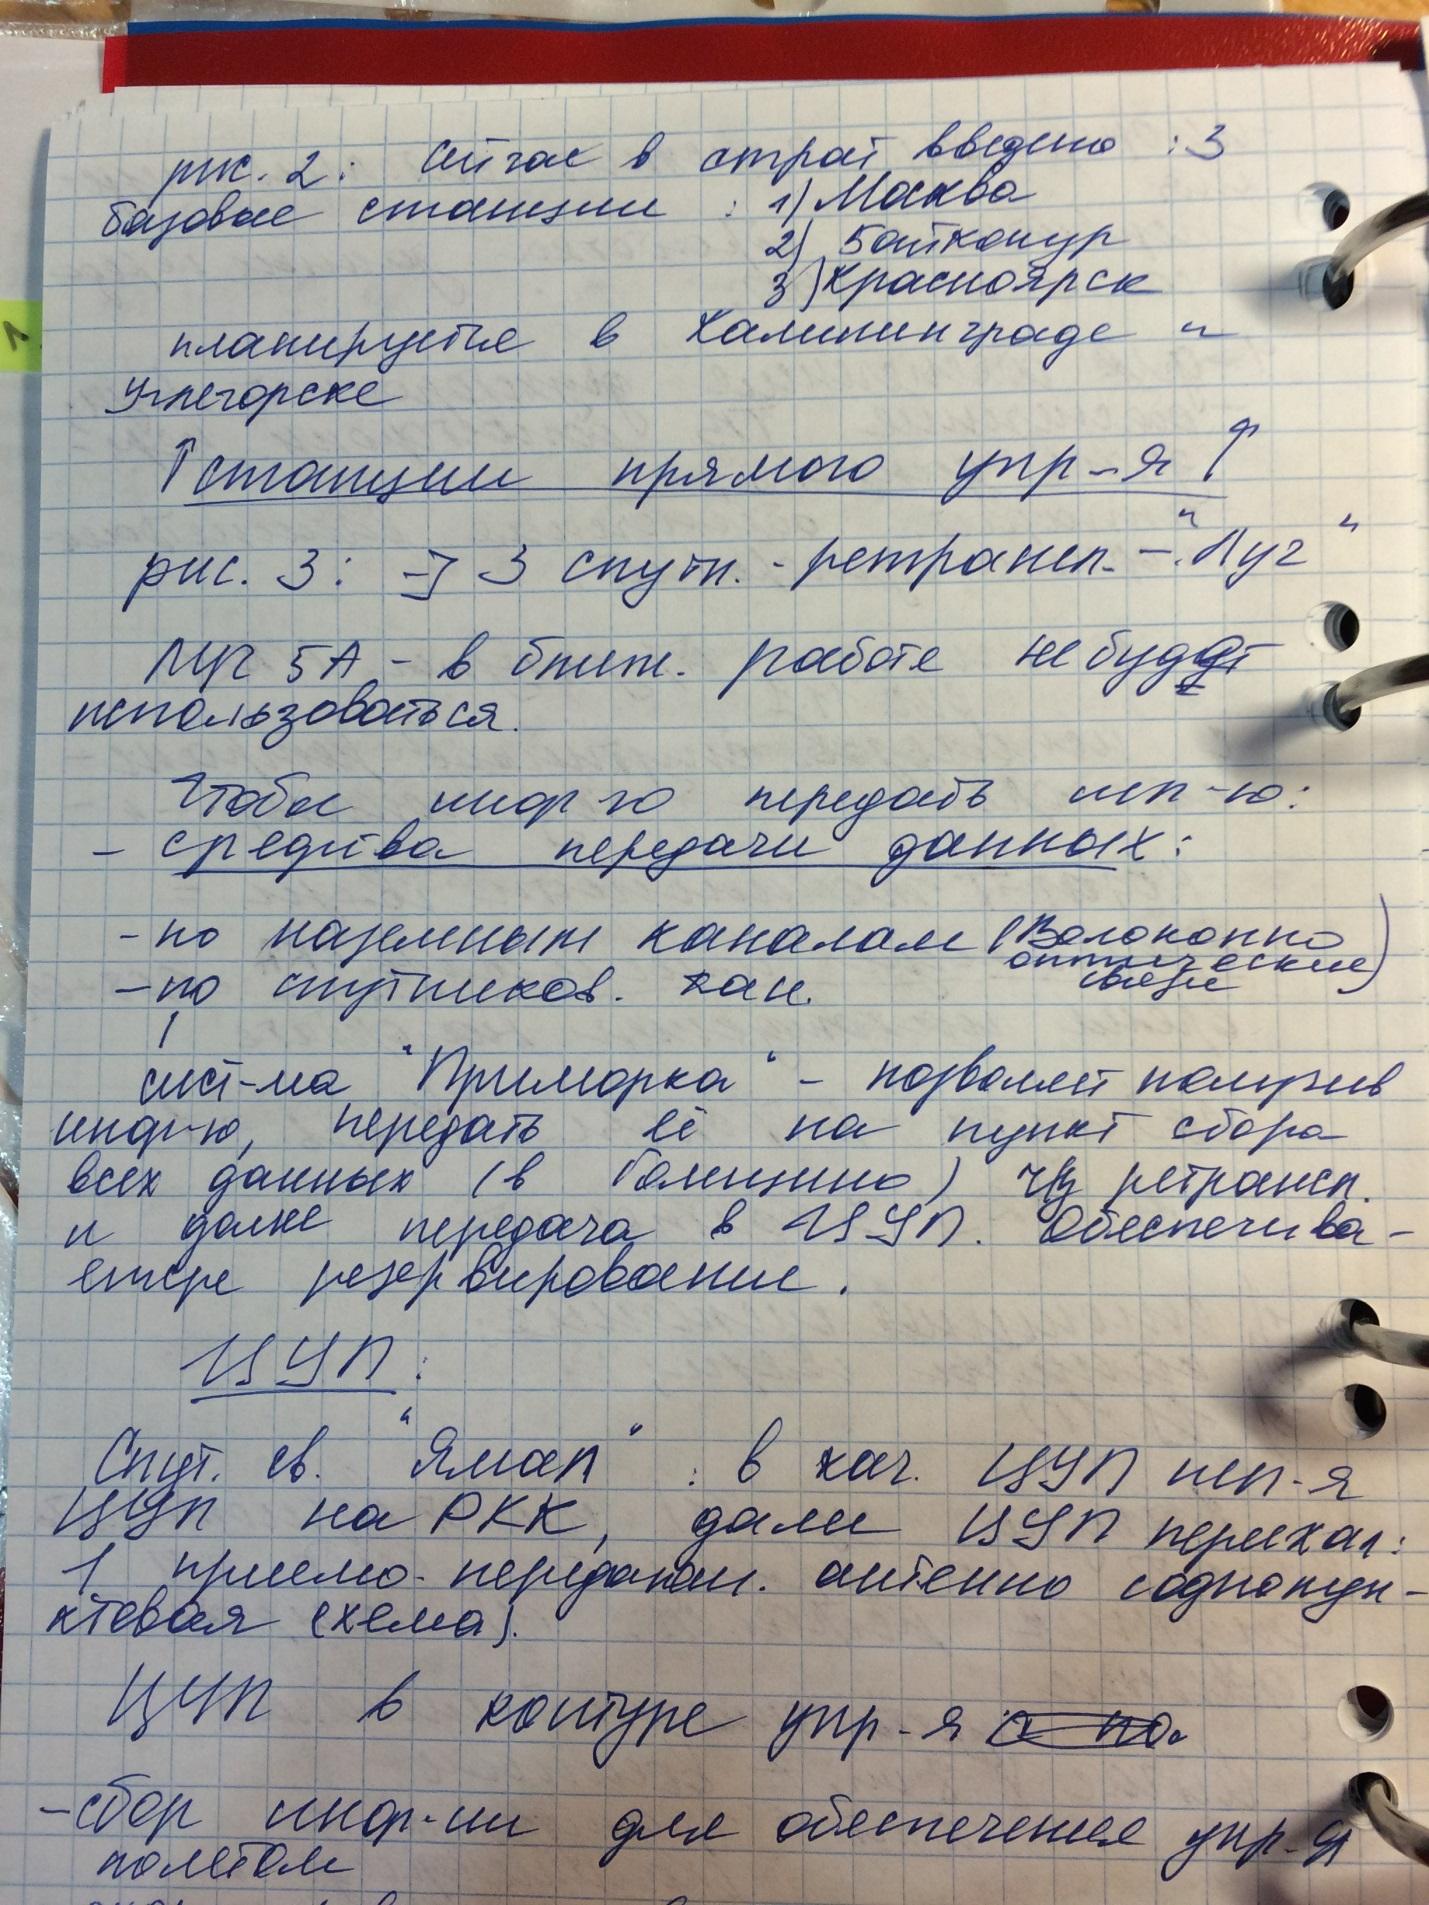 рис. 2: Сейчас в строй введено : 3
базовые станции : 1) Москва
2) Байконур
3) Красноярск
планируется в Калининграде и
Углегорске
↑ станции прямого упр-я ↑
рис. 3: => 3 спутн. - ретрансл. - "Луч"
Луч 5А - в ближ. работе не будет
использоваться.
Чтобы инф-ю передать исп-ю:
- средства передачи данных:
- по наземным каналам (Волоконно
оптические
связи)
- по спутников. кан.
сист-ма "Приморка" - позволяет получив
инф-ю, передать её на пункт сбора
всех данных (в Голицино) ч/з ретрансл.
и далее передача в ЦУП. Обеспечива-
ется резервирование.
ЦУП:
Спут. св. "Ямал" : в кач. ЦУП исп-я
ЦУП на РКК, далее ЦУП переехал:
1 приемо-передающ. антенно (однопун-
ктовая схема).
ЦУП в контуре упр-я
- сбор инф-ии для обеспечения упр-я
полётом